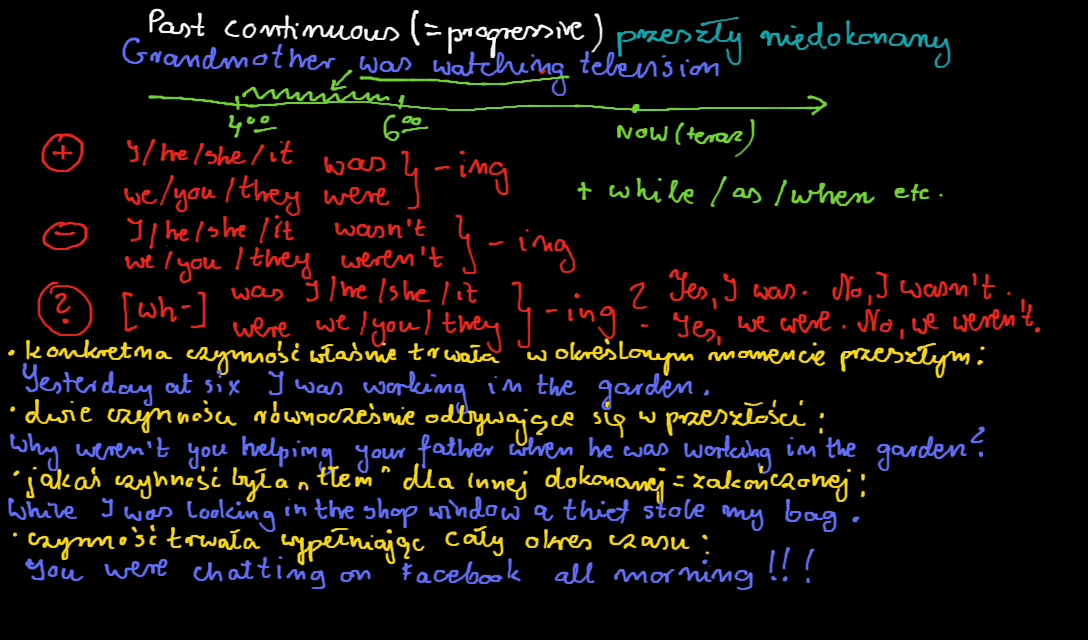 Past continuous (=progressive) przeszły niedokonany
Grandmother was watching television
4⁰⁰ 6⁰⁰ NOW (teraz)
+ I/he/she/it was } -ing
we/you/they were
+ while / as / when etc.
- I/he/she/it wasn't } -ing
we/you/they weren't
? [wh-] was I/he/she/it } -ing ? Yes, I was. No, I wasn't.
were we/you/they - Yes, we were. No, we weren't.
• konkretna czynność właśnie trwała w określonym momencie przeszłym:
Yesterday at six I was working in the garden.
• dwie czynności równocześnie odbywające się w przeszłości:
Why weren't you helping your father when he was working in the garden?
• jakaś czynność była „tłem" dla innej dokonanej = zakończonej:
While I was looking in the shop window a thief stole my bag.
• czynność trwała wypełniając cały okres czasu:
You were chatting on Facebook all morning!!!